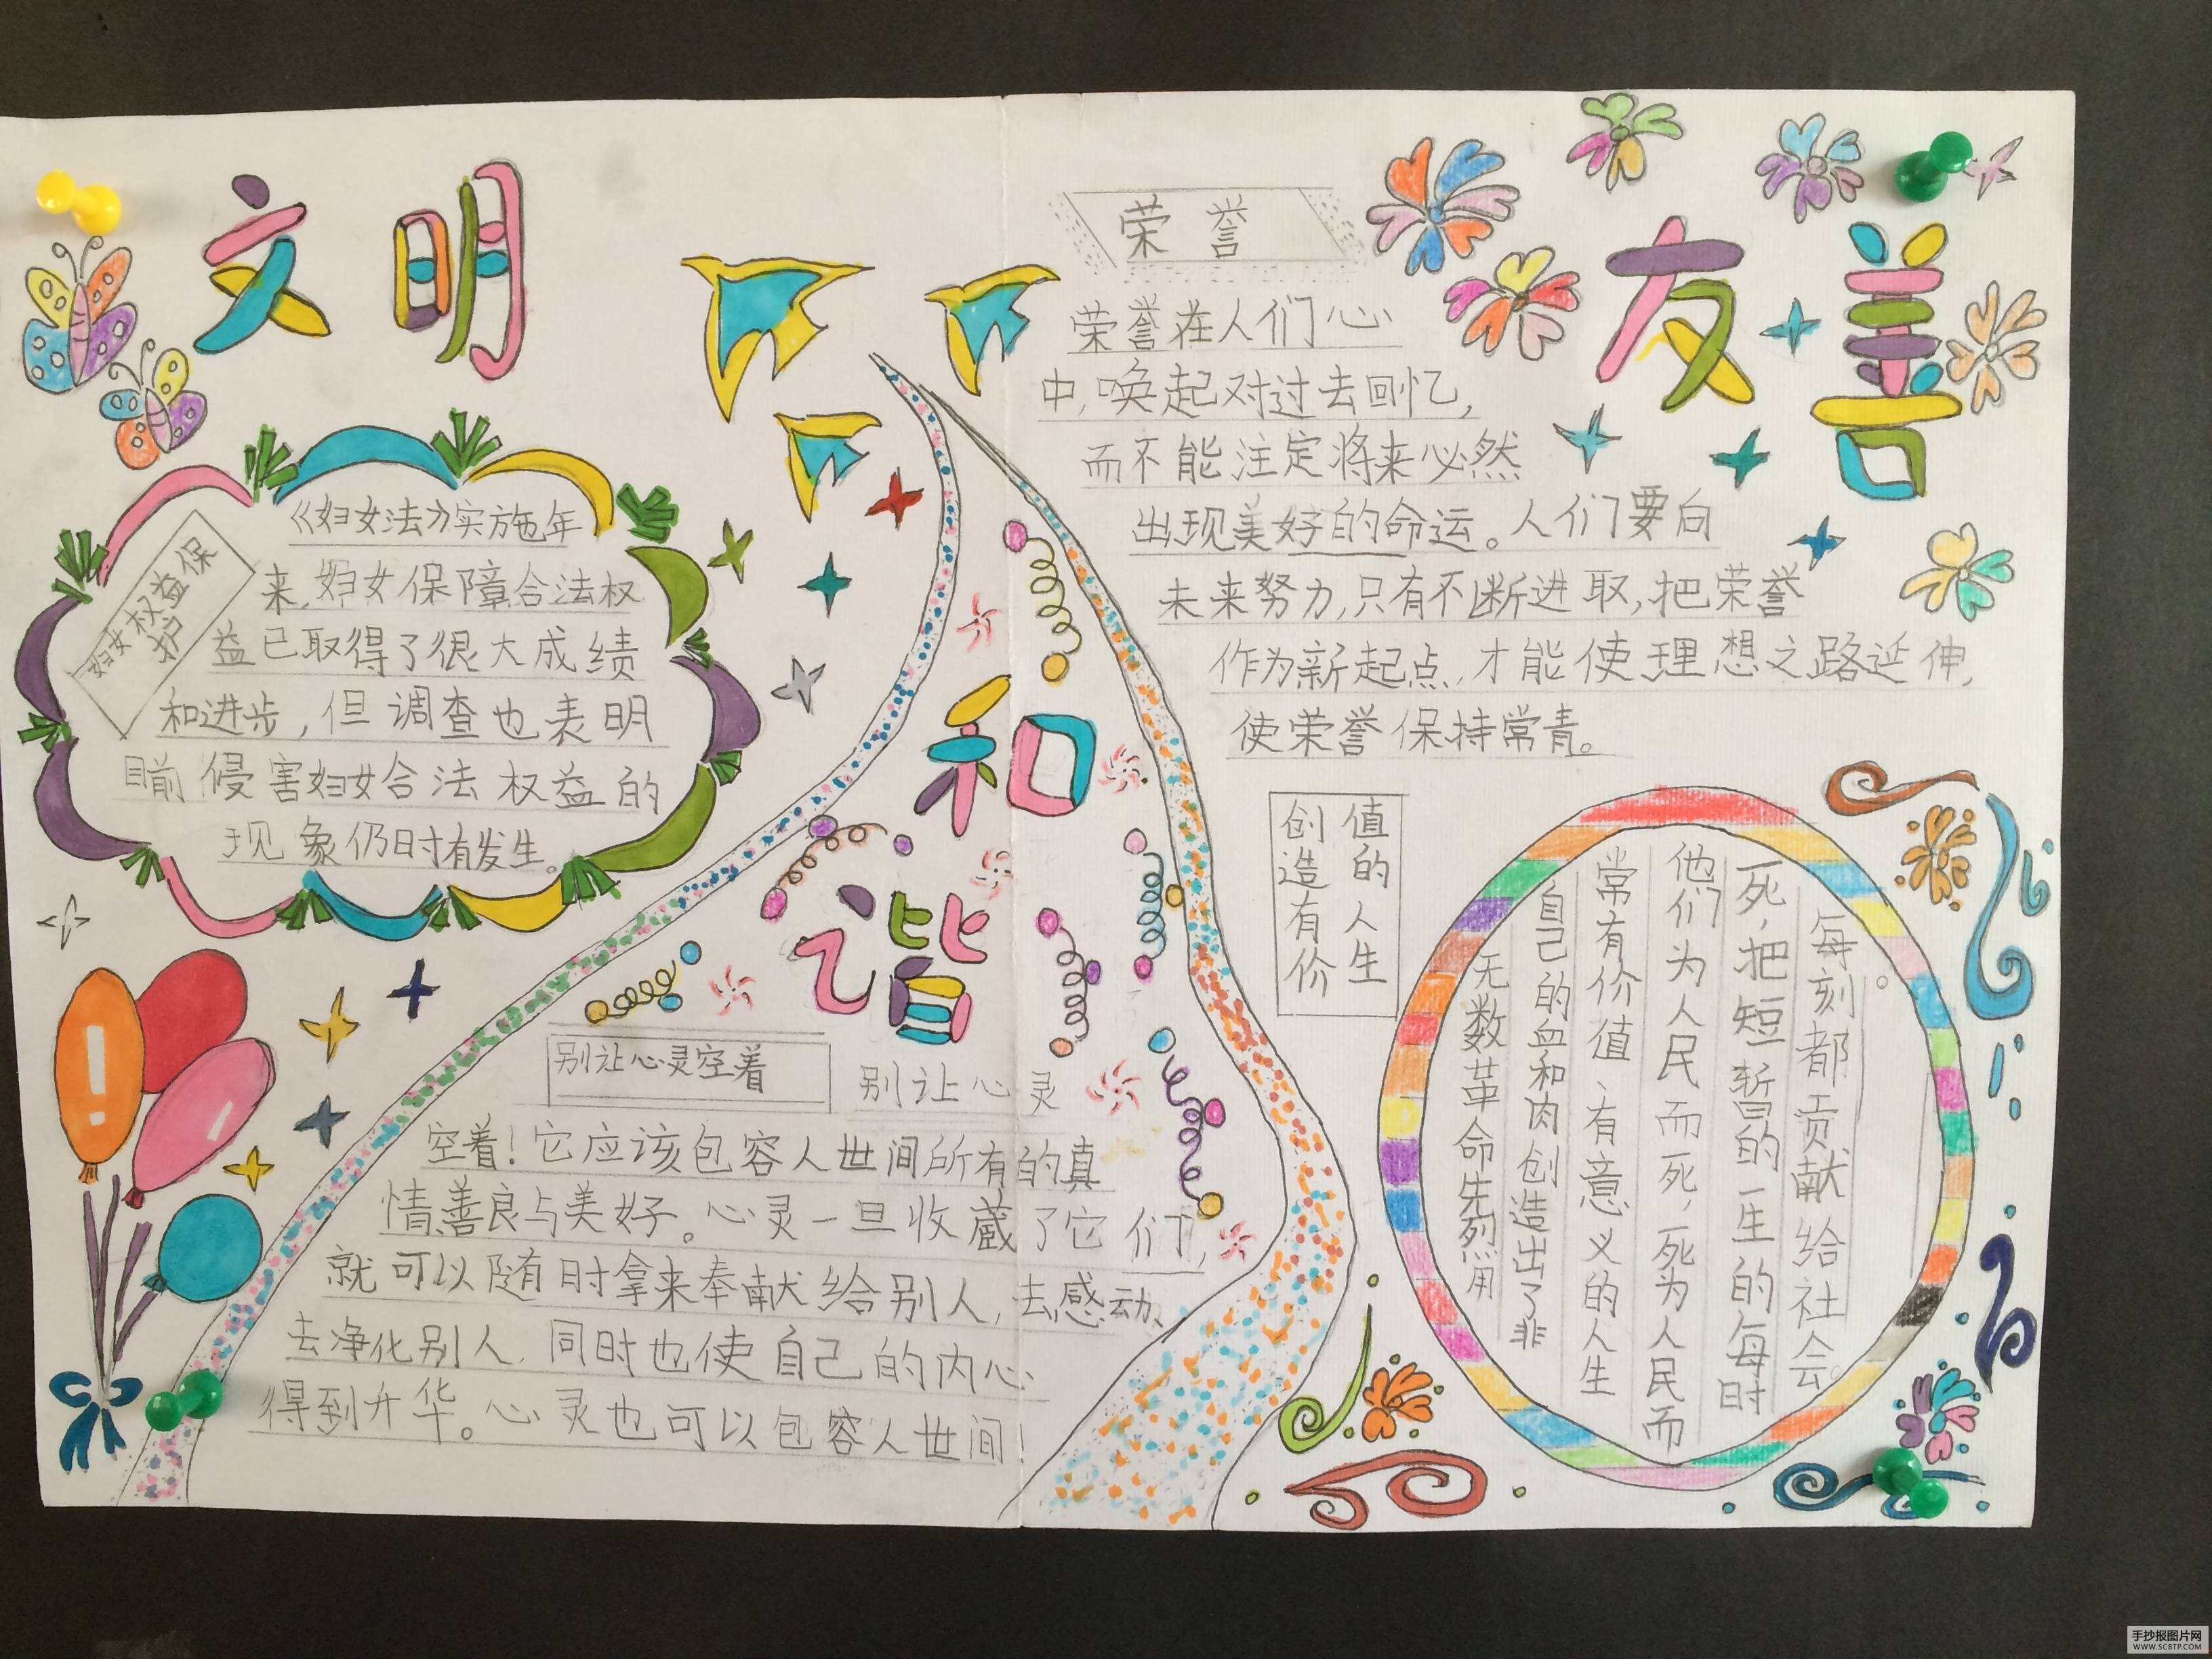 文明
《妇女法》实施年
来,妇女保障合法权
益已取得了很大成绩
和进步,但调查也表明
目前侵害妇女合法权益的
现象仍时有发生。
妇女权益保
护
和
谐
别让心灵空着
别让心灵
空着!它应该包容人世间所有的真
情善良与美好。心灵一旦收藏了它们,
就可以随时拿来奉献给别人,去感动、
去净化别人,同时也使自己的内心
得到升华。心灵也可以包容人世间!
荣誉
荣誉在人们心
中,唤起对过去回忆,
而不能注定将来必然
出现美好的命运。人们要向
未来努力,只有不断进取,把荣誉
作为新起点,才能使理想之路延伸,
使荣誉保持常青。
友善
创造有价
值的人生
无数革命先烈用
自己的血和肉创造出了非
常有价值、有意义的人生
他们为人民而死,死为人民而
死,把短暂的一生的每时
每刻都贡献给社会。
。
手抄报图片网
WWW.SCBTP.COM